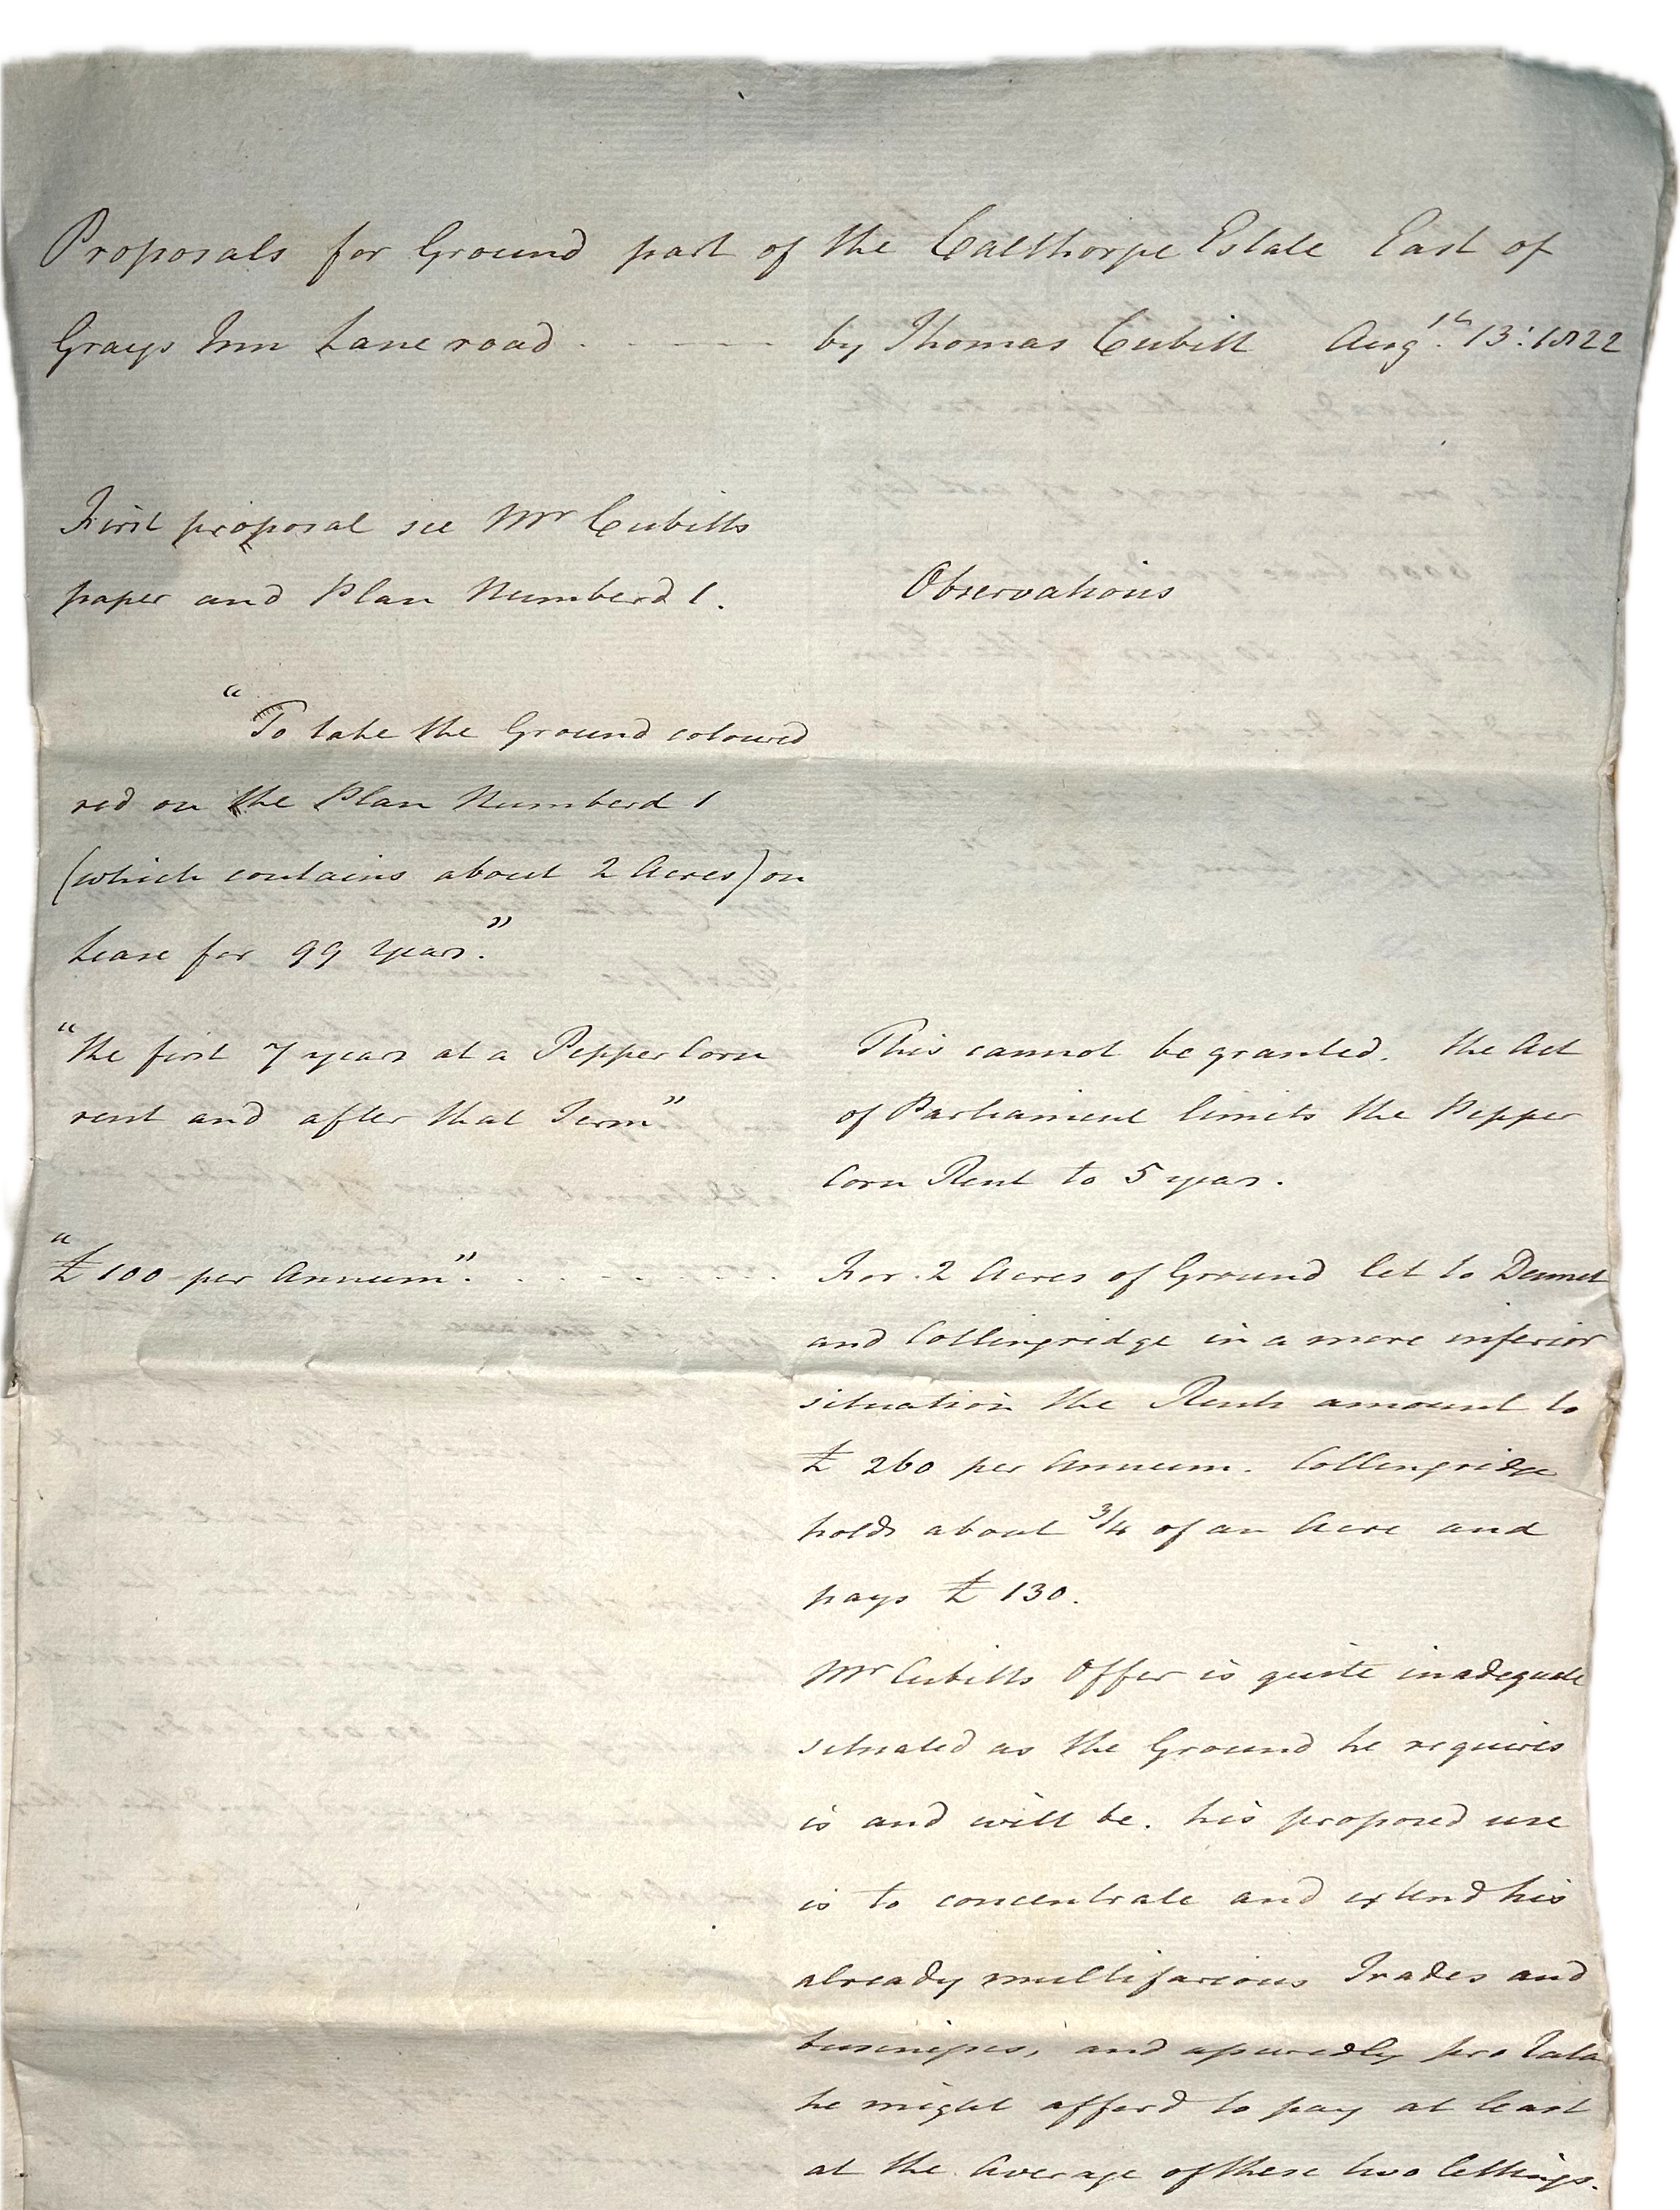 Proposals for Ground part of the Calthorpe Estate East of
Grays Inn Lane road . - - - - by Thomas Cubitt Augst. 13: 1822
First proposal see Mr Cubitts
paper and Plan Numberd 1.
Observations
"To take the Ground coloured
red on the Plan Numberd 1
(which contains about 2 Acres) on
Lease for 99 years."
"the first 7 years at a Pepper Corn
rent and after that Term"
This cannot be granted. the Act
of Parliament limits the Pepper
Corn Rent to 5 years.
"£100 per Annum" . . . . . .
For 2 Acres of Ground let to Dennet
and Collingridge in a more inferior
situation the Rents amount to
£ 260 per Annum. Collingridge
holds about 3/4 of an Acre and
pays £ 130.
Mr Cubitts Offer is quite inadequate
situated as the Ground he requires
is and will be. his proposed use
is to concentrate and extend his
already multifarious Trades and
businesses, and assuredly pro Rata
he might afford to pay at least
at the Average of these two lettings.